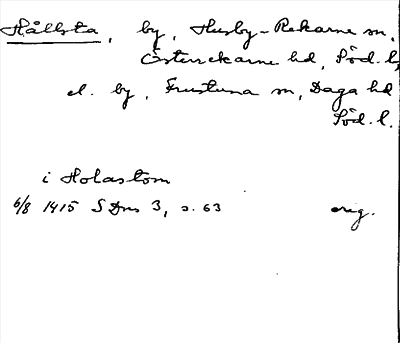 Hållsta, by, Husby-Rekarne sn,
Österrekarne hd, Söd. l.
el. by, Frustuna sn, Daga hd
Söd. l.
i Holastom
6/8 1415 SDns 3, s. 63 orig.